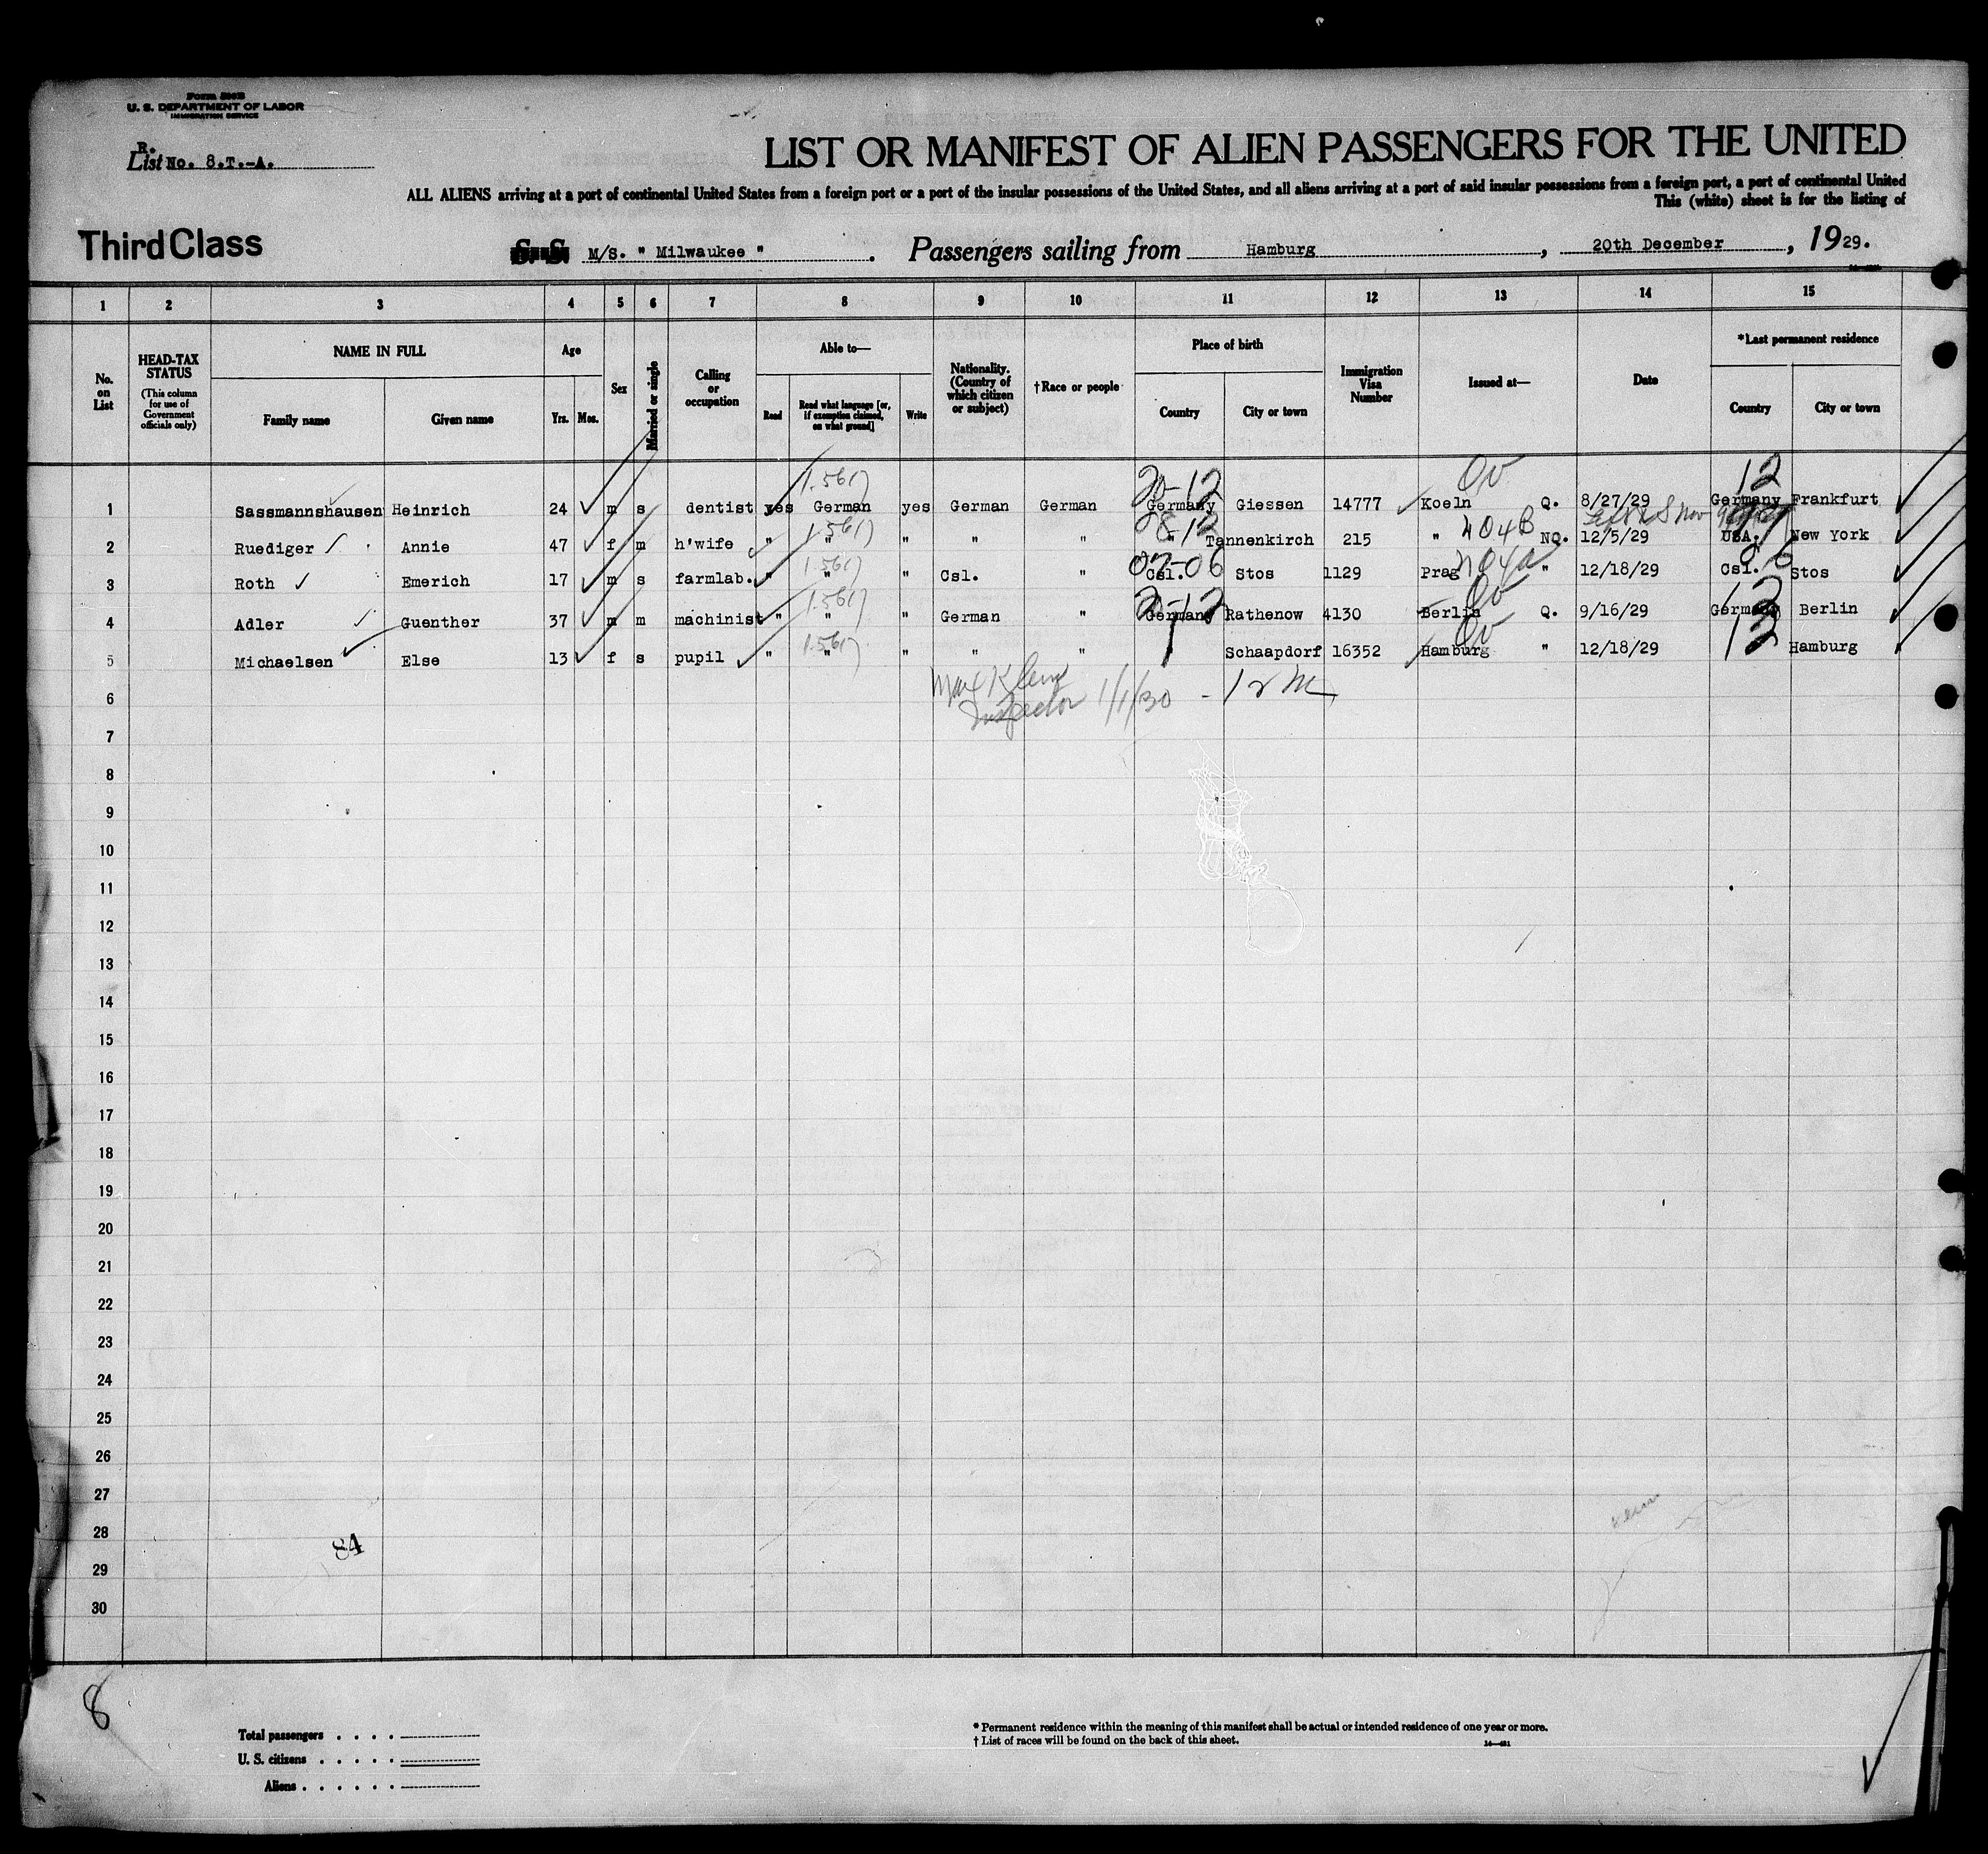 Form 500B
U. S. DEPARTMENT OF LABOR
IMMIGRATION SERVICE
R.
List No. 8.T.-A.
LIST OR MANIFEST OF ALIEN PASSENGERS FOR THE UNITED
ALL ALIENS arriving at a port of continental United States from a foreign port or a port of the insular possessions of the United States, and all aliens arriving at a port of said insular possessions from a foreign port, a port of continental United
This (white) sheet is for the listing of
Third Class
S. S. M/S. " Milwaukee ". Passengers sailing from Hamburg, 20th December, 1929.
1 2 3 4 5 6 7 8 9 10 11 12 13 14 15
No. on List
HEAD-TAX STATUS
(This column for use of Government officials only)
NAME IN FULL
Family name Given name
Age
Yrs. Mos.
Sex
Married or single
Calling or occupation
Able to—
Read Read what language [or, if exemption claimed, on what ground] Write
Nationality. (Country of which citizen or subject)
†Race or people
Place of birth
Country City or town
Immigration Visa Number
Issued at—
Date
*Last permanent residence
Country City or town
1.561) 20-12 QV 12
1 Sassmannshausen Heinrich 24 m s dentist yes German yes German German Germany Giessen 14777 Koeln Q. 8/27/29 Germany Frankfurt
1.561) 08-12 404B
2 Ruediger Annie 47 f m h'wife " " " " " " Tannenkirch 215 " NQ. 12/5/29 USA. New York
1.561) 07-06 404a 06
3 Roth Emerich 17 m s farmlab. " " " Csl. " Csl. Stos 1129 Prag " 12/18/29 Csl. Stos
1.561) 20-12 QV 12
4 Adler Guenther 37 m m machinist " " " German " Germany Rathenow 4130 Berlin Q. 9/16/29 Germany Berlin
1.561) QV 12
5 Michaelsen Else 13 f s pupil " " " " " Schaapdorf 16352 Hamburg " 12/18/29 Hamburg
Max Klein
Inspector 1/1/30 -
6
7
8
9
10
11
12
13
14
15
16
17
18
19
20
21
22
23
24
25
26
27
28
84
29
30
8
Total passengers . . . .
U. S. citizens . . . . .
Aliens . . . . . .
* Permanent residence within the meaning of this manifest shall be actual or intended residence of one year or more.
† List of races will be found on the back of this sheet.